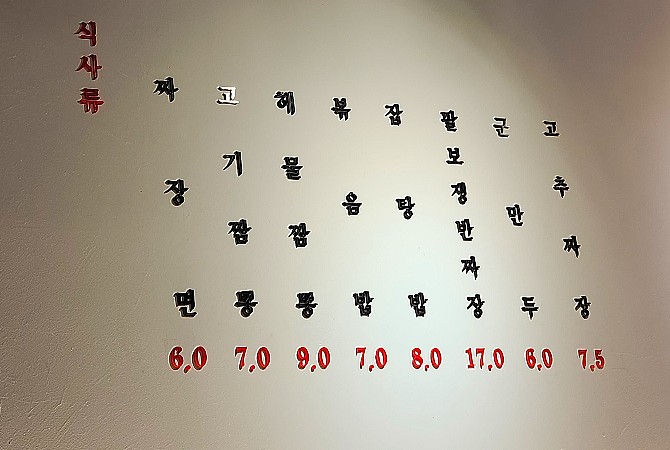 식사류
짜장면
고기짬뽕
해물짬뽕
볶음밥
잡탕밥
팔보쟁반짜장
군만두
고추짜장
6,0 7,0 9,0 7,0 8,0 17,0 6,0 7,5